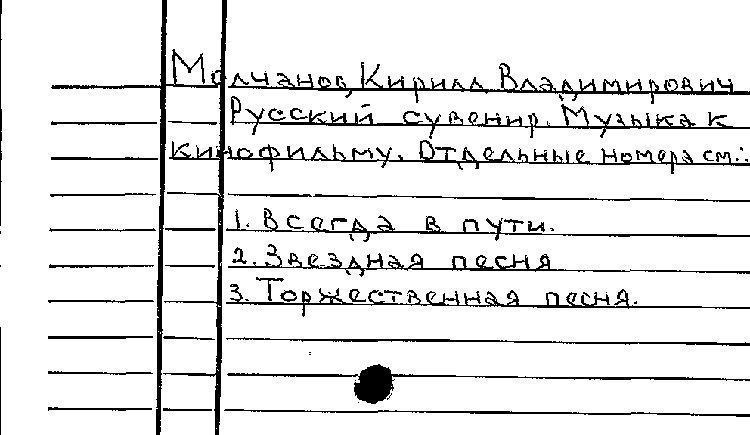 Молчанов, Кирилл Владимирович
Русский сувенир. Музыка к
кинофильму. Отдельные номера см.:
1. Всегда в пути.
2. Звездная песня
3. Торжественная песня.